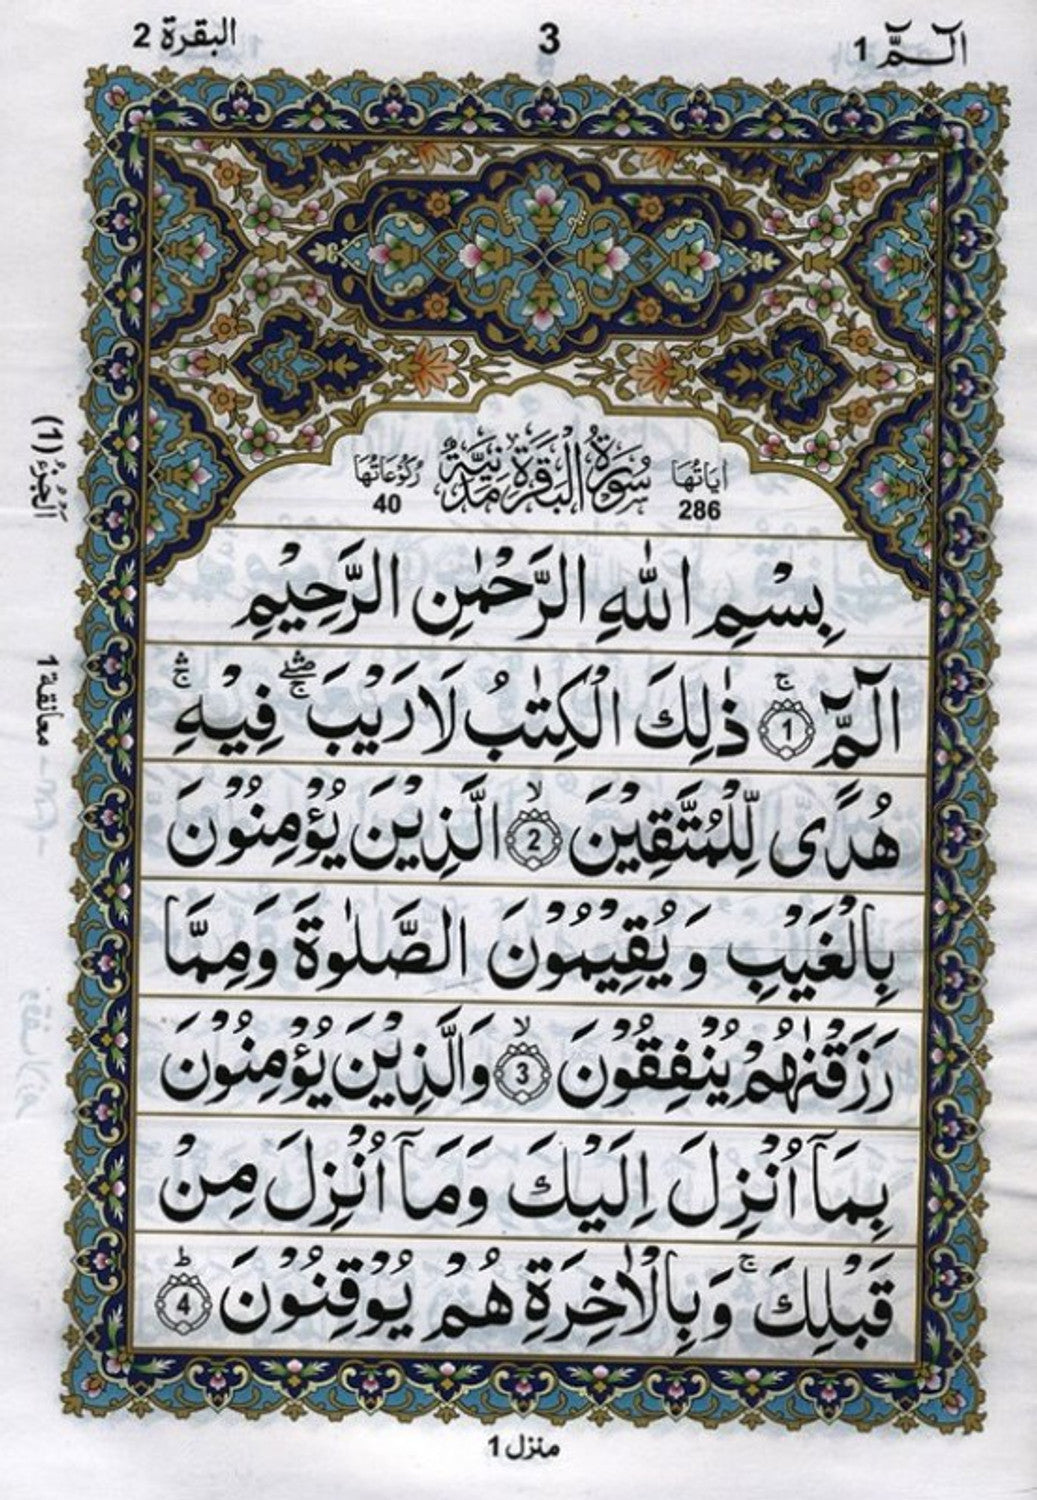 الٓـمّٓ 1
3
البقرة 2
اٰيَاتُهَا
286
سُوْرَةُ الْبَقَرَةِ مَدَنِيَّةٌ
رُكُوْعَاتُهَا
40
بِسْمِ اللّٰهِ الرَّحْمٰنِ الرَّحِيْمِ
الٓمّٓ ۚ 1 ذٰلِكَ الْكِتٰبُ لَا رَيْبَ ۛۖۚ فِيْهِ ۛۚ
هُدًى لِّلْمُتَّقِيْنَ ۙ 2 الَّذِيْنَ يُؤْمِنُوْنَ
بِالْغَيْبِ وَيُقِيْمُوْنَ الصَّلٰوةَ وَمِمَّا
رَزَقْنٰهُمْ يُنْفِقُوْنَ ۙ 3 وَالَّذِيْنَ يُؤْمِنُوْنَ
بِمَآ اُنْزِلَ اِلَيْكَ وَمَآ اُنْزِلَ مِنْ
قَبْلِكَ ۚ وَبِالْاٰخِرَةِ هُمْ يُوْقِنُوْنَ ؕ 4
الْجُزْءُ (1)
معانقة 1
منزل 1